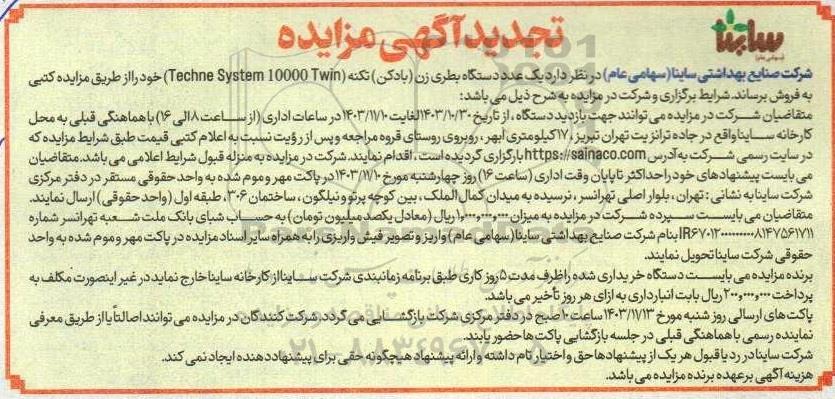 تجدید آگهی مزایده
ساینا
(سهامی عام)
شرکت صنایع بهداشتی ساینا (سهامی عام) در نظر دارد یک عدد دستگاه بطری زن (بادکن) تکنه (Techne System 10000 Twin) خود را از طریق مزایده کتبی
به فروش برساند. شرایط برگزاری و شرکت در مزایده به شرح ذیل می باشد:
متقاضیان شرکت در مزایده می توانند جهت بازدید دستگاه ، از تاریخ ۱۴۰۳/۱۰/۳۰ لغایت ۱۴۰۳/۱۱/۱۰ در ساعات اداری (از ساعت ۸ الی ۱۶) با هماهنگی قبلی به محل
کارخانه ساینا واقع در جاده ترانزیت تهران تبریز ، ۱۷ کیلومتری ابهر ، روبروی روستای قروه مراجعه و پس از رؤیت نسبت به اعلام کتبی قیمت طبق شرایط مزایده که
در سایت رسمی شرکت به آدرس https://sainaco.com بارگزاری گردیده است ، اقدام نمایند. شرکت در مزایده به منزله قبول شرایط اعلامی می باشد. متقاضیان
می بایست پیشنهادهای خود را حداکثر تا پایان وقت اداری (ساعت ۱۶) روز چهارشنبه مورخ ۱۴۰۳/۱۱/۱۰ در پاکت مهر و موم شده به واحد حقوقی مستقر در دفتر مرکزی
شرکت ساینا به نشانی : تهران ، بلوار اصلی تهرانسر ، نرسیده به میدان کمال الملک ، بین کوچه پرتو و نیلگون ، ساختمان ۳۰۶ ، طبقه اول (واحد حقوقی) ارسال نمایند.
متقاضیان می بایست سپرده شرکت در مزایده به میزان ۱,۰۰۰,۰۰۰,۰۰۰ ریال (معادل یکصد میلیون تومان) به حساب شبای بانک ملت شعبه تهرانسر شماره
بنام شرکت صنایع بهداشتی ساینا (سهامی عام) واریز و تصویر فیش واریزی را به همراه سایر اسناد مزایده در پاکت مهر و موم شده به واحد
حقوقی شرکت ساینا تحویل نمایند.
برنده مزایده می بایست دستگاه خریداری شده را ظرف مدت ۵ روز کاری طبق برنامه زمانبندی شرکت ساینا از کارخانه ساینا خارج نماید در غیر اینصورت مکلف به
پرداخت ۲۰۰,۰۰۰,۰۰۰ ریال بابت انبارداری به ازای هر روز تأخیر می باشد.
پاکت های ارسالی روز شنبه مورخ ۱۴۰۳/۱۱/۱۳ ساعت ۱۰ صبح در دفتر مرکزی شرکت بازگشایی می گردد. شرکت کنندگان در مزایده می توانند اصالتاً یا از طریق معرفی
نماینده رسمی با هماهنگی قبلی در جلسه بازگشایی پاکت ها حضور یابند.
شرکت ساینا در رد یا قبول هر یک از پیشنهادها حق و اختیار تام داشته و ارائه پیشنهاد هیچگونه حقی برای پیشنهاد دهنده ایجاد نمی کند.
هزینه آگهی بر عهده برنده مزایده می باشد.